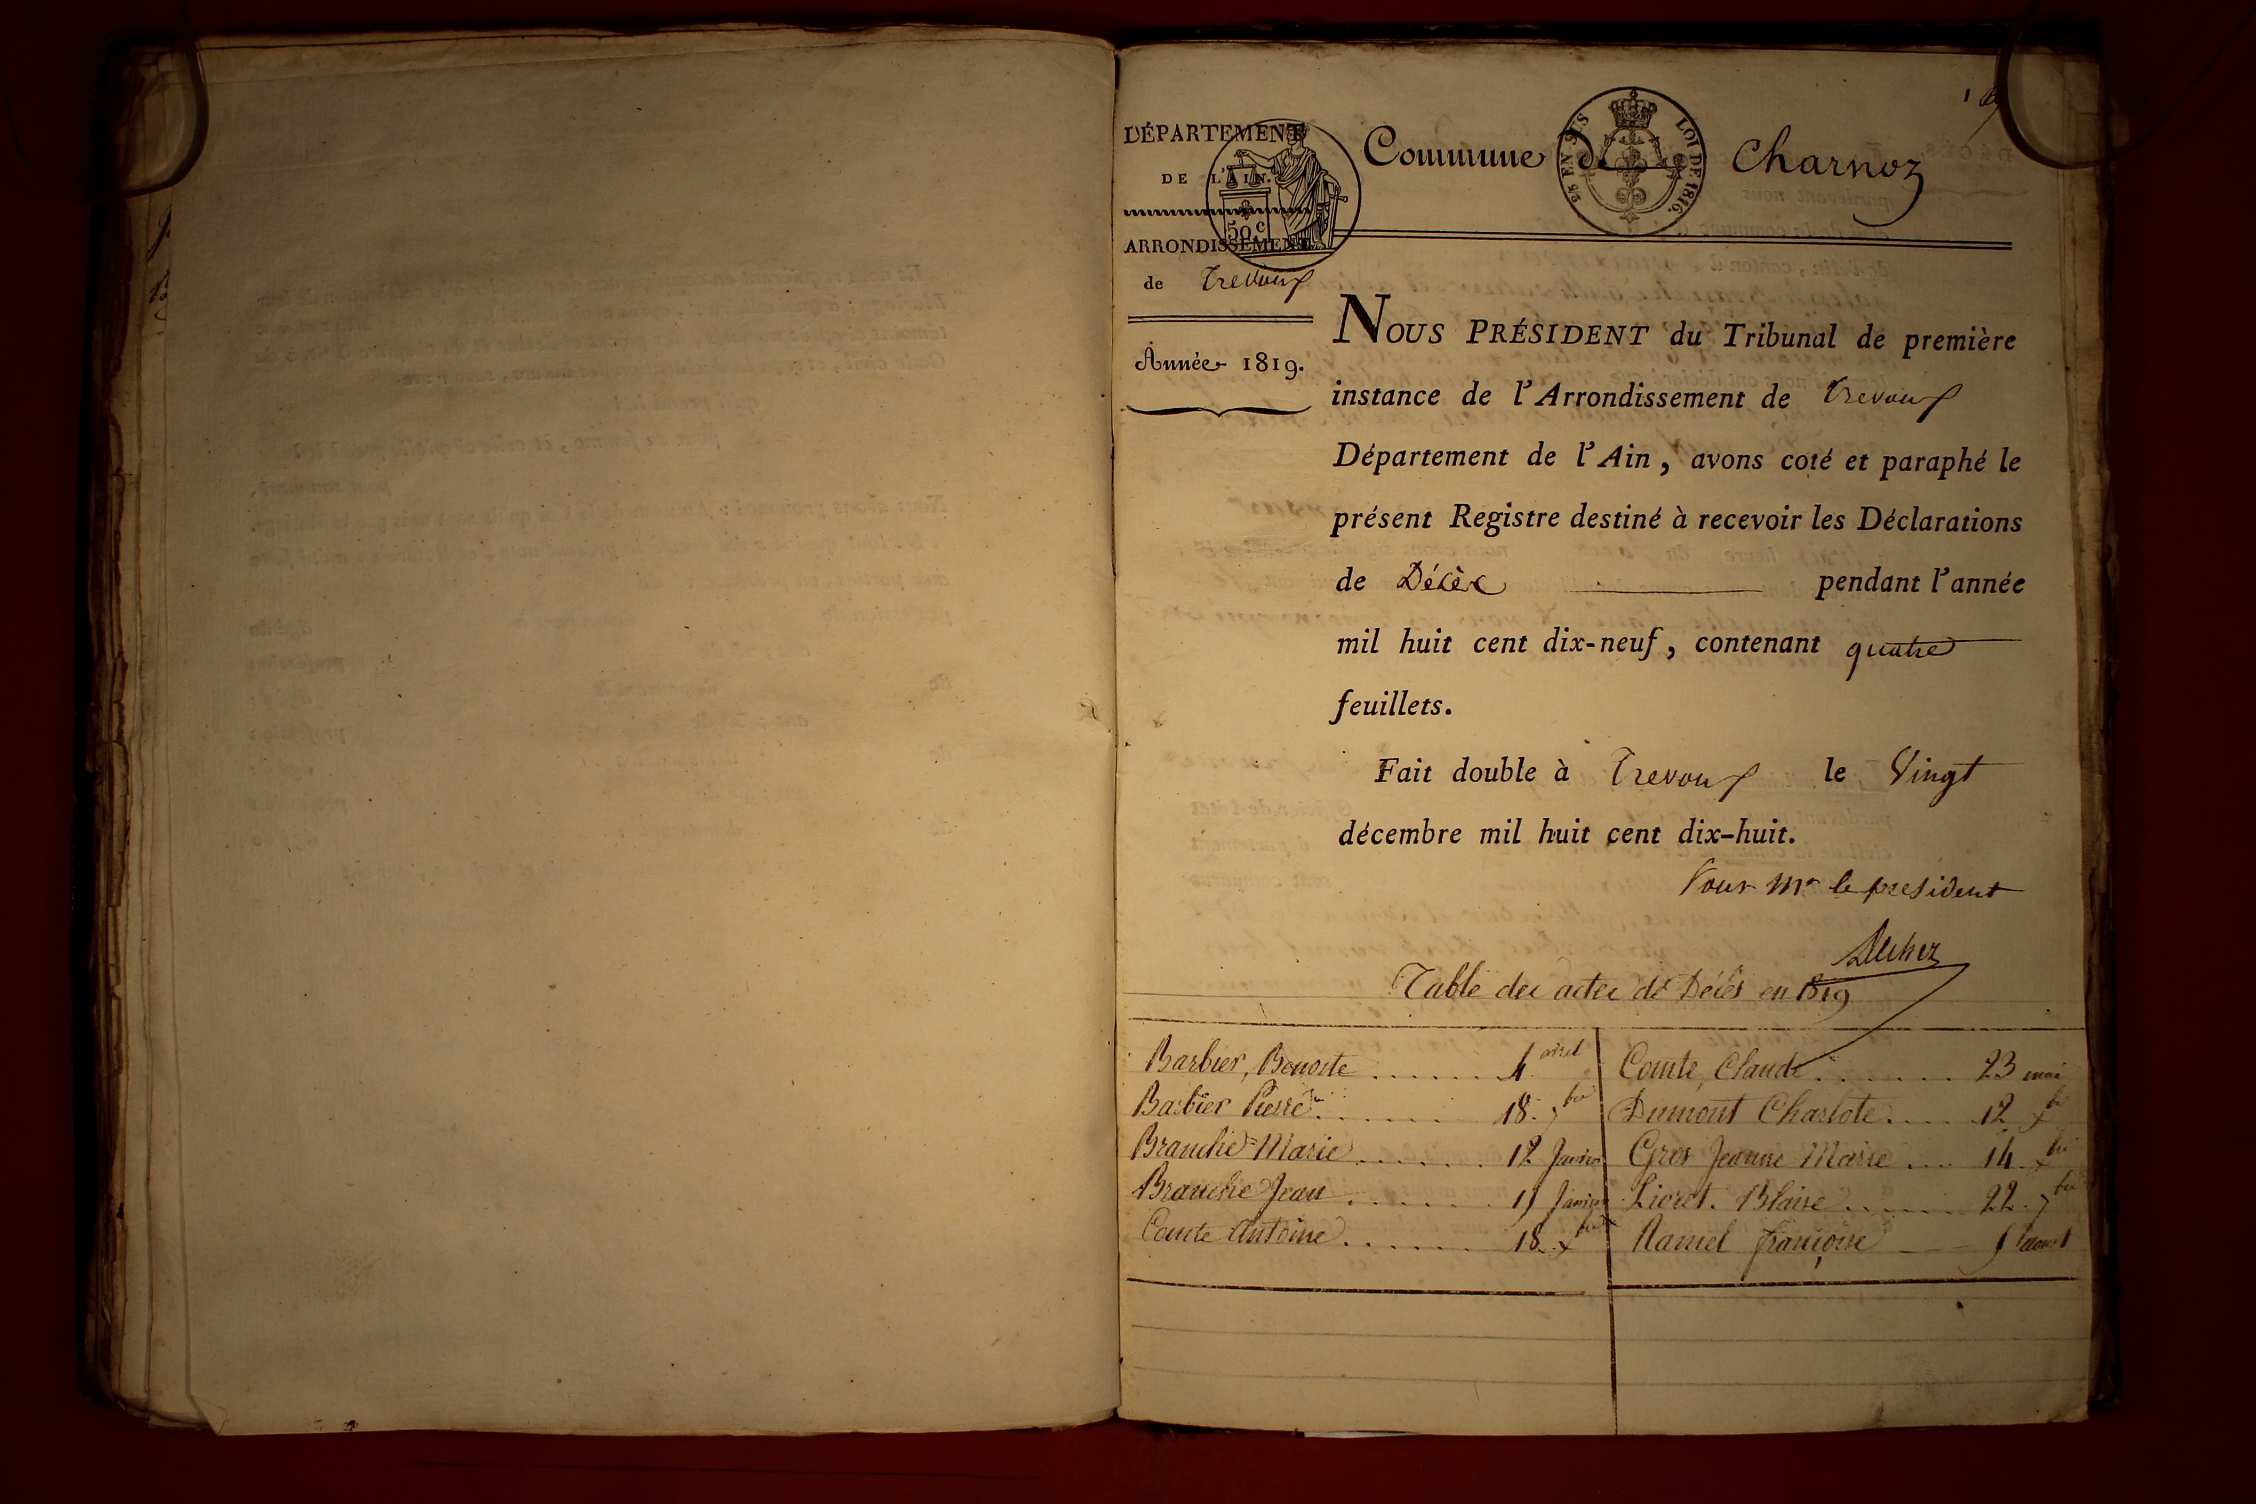 DÉPARTEMENT
DE L'AIN.
ARRONDISSEMENT
de Trevoux
Année 1819.
50 c
Commune de Charnoz
25 EN SUS LOI DE 1816.
NOUS PRÉSIDENT du Tribunal de première
instance de l'Arrondissement de Trevoux
Département de l'Ain, avons coté et paraphé le
présent Registre destiné à recevoir les Déclarations
de Décès pendant l'année
mil huit cent dix-neuf, contenant quatre
feuillets.
Fait double à Trevoux le Vingt
décembre mil huit cent dix-huit.
Pour Mr le president
Table des actes de Décès en 1819
Barbier, Benoite ....... 4 avril
Barbier Pierre ....... 18. 7bre
Branche Marie ....... 12 Janvier
Branche Jean ....... Janvier
Comte Antoine ....... 18. xbre
Comte, Claude ....... 23 mai
Dumont Charlote .... 12 xbre
Gros Jeanne Marie ... 14. xbre
Blaise ...... 22. 7bre
Ramel françoise aout